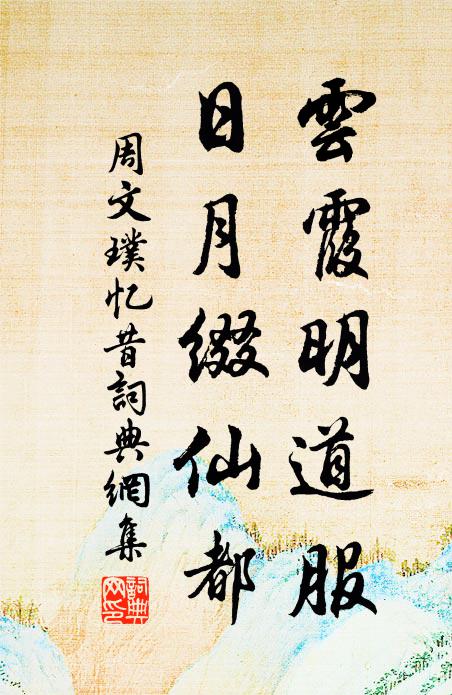 雲霞明道服
日月綴仙都
周文璞忆昔詞典網集
詞典
网印